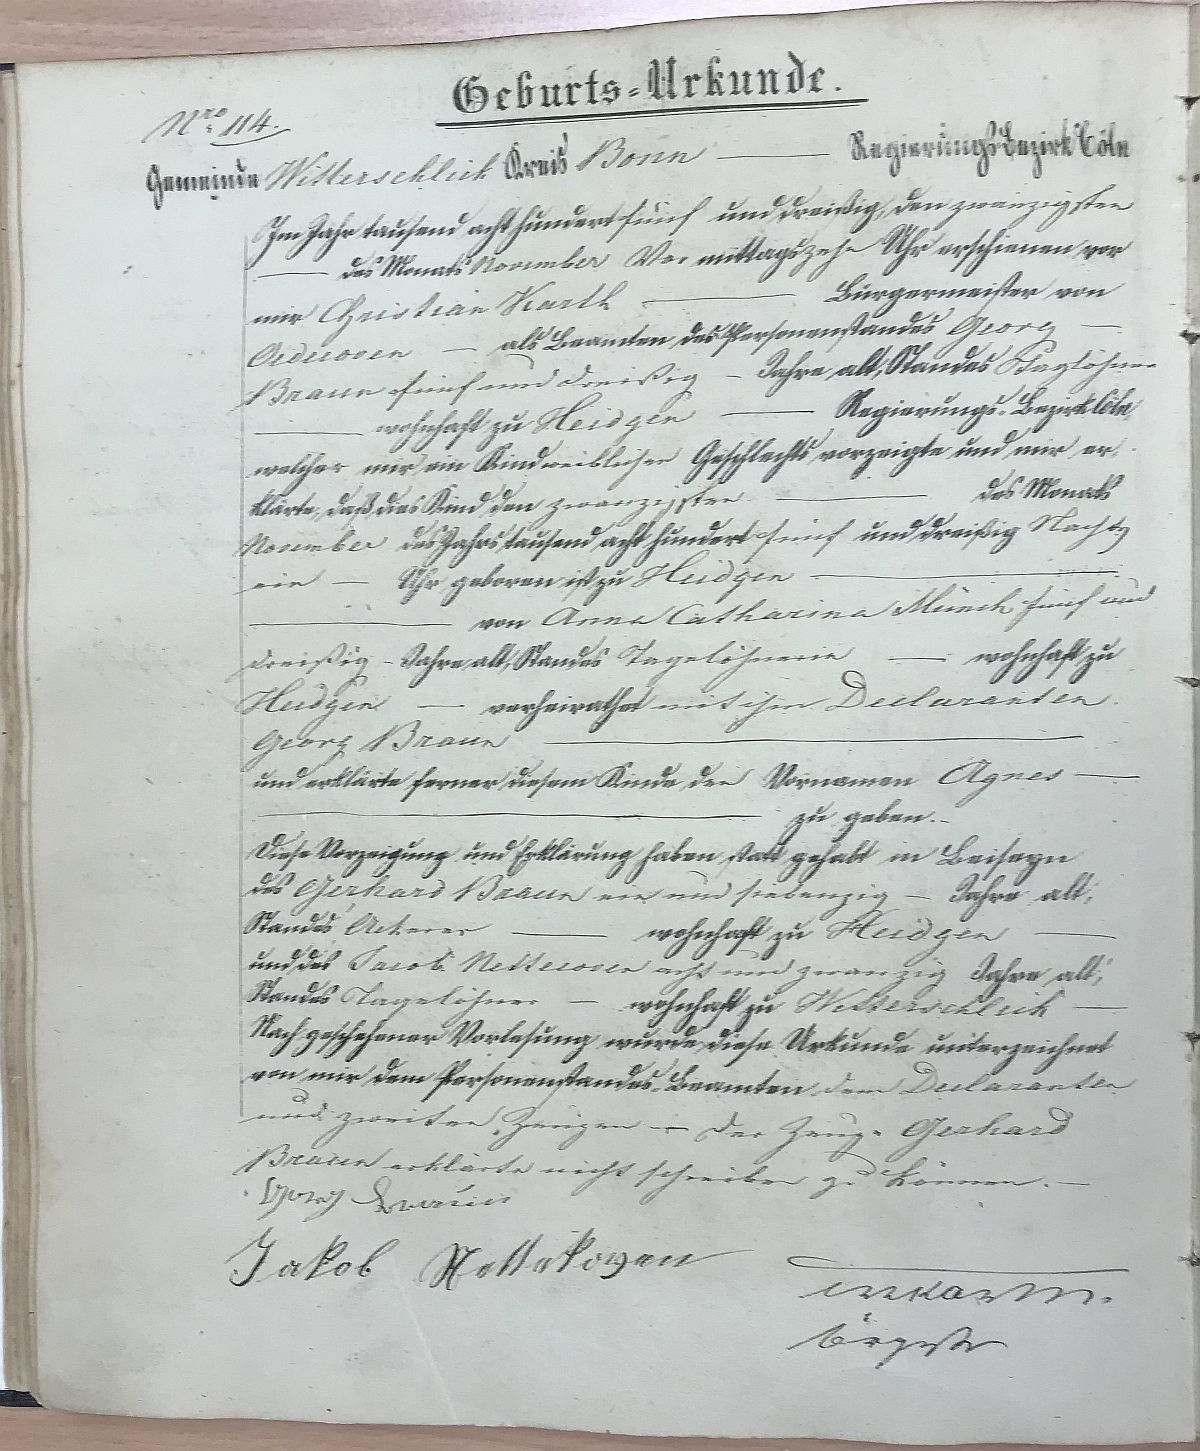 Geburts-Urkunde.
Nro 114.
Gemeinde Witterschlick Kreis Bonn Regierungsbezirk Cöln
Im Jahr tausend acht hundert fünf und dreißig, den zwanzigsten
des Monats November Vor mittags zehn Uhr erschienen vor
mir Christian Karth Bürgermeister von
Oedecoven als Beamten des Personenstandes Georg
Braun fünf und dreißig Jahre alt, Standes Taglöhner
wohnhaft zu Heidgen Regierungs-Bezirk Cöln,
welcher mir ein Kind weiblichen Geschlechts vorzeigte und mir er-
klärte, daß dies Kind den zwanzigsten des Monats
November des Jahrs tausend acht hundert fünf und dreißig Nachts
ein Uhr geboren ist zu Heidgen
von Anna Catharina Münch fünf und
dreißig Jahre alt, Standes Tagelöhnerin wohnhaft zu
Heidgen verheirathet mit ihm Declaranten
Georg Braun
und erklärte ferner diesem Kinde den Vornamen Agnes
zu geben.
Diese Vorzeigung und Erklärung haben statt gehabt in Beiseyn
des Gerhard Braun ein und siebenzig Jahre alt,
Standes Ackerer wohnhaft zu Heidgen
und des Jacob Nettecoven acht und zwanzig Jahre alt,
Standes Tagelöhner wohnhaft zu Witterschlick
Nach geschehener Vorlesung wurde diese Urkunde unterzeichnet
von mir dem Personenstandes-Beamten dem Declaranten
und zweiten Zeugen – Der Zeuge Gerhard
Braun erklärte nicht schreiben zu können.
Georg Braun
Jakob Nettekoven